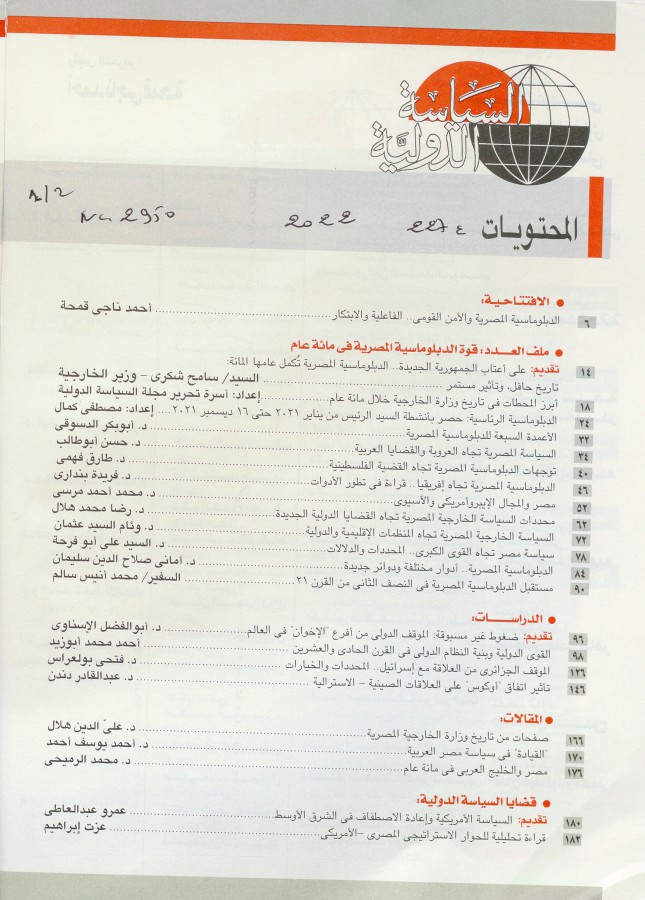 السياسة
الدولية
المحتويات
227 ع
2022
1/2
● الافتتاحية:
٦ الدبلوماسية المصرية والأمن القومى.. الفاعلية والابتكار أحمد ناجى قمحة
● ملف العدد: قوة الدبلوماسية المصرية فى مائة عام
١٤ تقديم: على أعتاب الجمهورية الجديدة.. الدبلوماسية المصرية تُكمل عامها المائة:
تاريخ حافل، وتأثير مستمر السيد/ سامح شكرى – وزير الخارجية
١٨ أبرز المحطات فى تاريخ وزارة الخارجية خلال مائة عام إعداد: أسرة تحرير مجلة السياسة الدولية
٢٤ الدبلوماسية الرئاسية: حصر بأنشطة السيد الرئيس من يناير ٢٠٢١ حتى ١٦ ديسمبر ٢٠٢١ إعداد: مصطفى كمال
٣٢ الأعمدة السبعة للدبلوماسية المصرية د. أبوبكر الدسوقى
٣٤ السياسة المصرية تجاه العروبة والقضايا العربية د. حسن أبوطالب
٤٠ توجهات الدبلوماسية المصرية تجاه القضية الفلسطينية د. طارق فهمى
٤٦ الدبلوماسية المصرية تجاه إفريقيا.. قراءة فى تطور الأدوات د. فريدة بندارى
٥٢ مصر والمجال الإيبروأمريكى والأسيوى د. محمد أحمد مرسى
٦٢ محددات السياسة الخارجية المصرية تجاه القضايا الدولية الجديدة د. رضا محمد هلال
٧٢ السياسة الخارجية المصرية تجاه المنظمات الإقليمية والدولية د. وئام السيد عثمان
٧٨ سياسة مصر تجاه القوى الكبرى.. المحددات والدلالات د. السيد على أبو فرحة
٨٤ الدبلوماسية المصرية.. أدوار مختلفة ودوائر جديدة د. أمانى صلاح الدين سليمان
٩٠ مستقبل الدبلوماسية المصرية فى النصف الثانى من القرن ٢١ السفير/ محمد أنيس سالم
● الدراسات:
٩٦ تقديم: ضغوط غير مسبوقة: الموقف الدولى من أفرع "الإخوان" فى العالم د. أبوالفضل الإسناوى
٩٨ القوى الدولية وبنية النظام الدولى فى القرن الحادى والعشرين أحمد محمد أبوزيد
١٢٦ الموقف الجزائرى من العلاقة مع إسرائيل.. المحددات والخيارات د. فتحى بولعراس
١٤٦ تأثير اتفاق "أوكوس" على العلاقات الصينية – الاسترالية د. عبدالقادر دندن
● المقالات:
١٦٦ صفحات من تاريخ وزارة الخارجية المصرية د. علىّ الدين هلال
١٧٠ "القيادة" فى سياسة مصر العربية د. أحمد يوسف أحمد
١٧٦ مصر والخليج العربى فى مائة عام د. محمد الرميحى
● قضايا السياسة الدولية:
١٨٠ تقديم: السياسة الأمريكية وإعادة الاصطفاف فى الشرق الأوسط عمرو عبدالعاطى
١٨٢ قراءة تحليلية للحوار الاستراتيجى المصرى –الأمريكى عزت إبراهيم